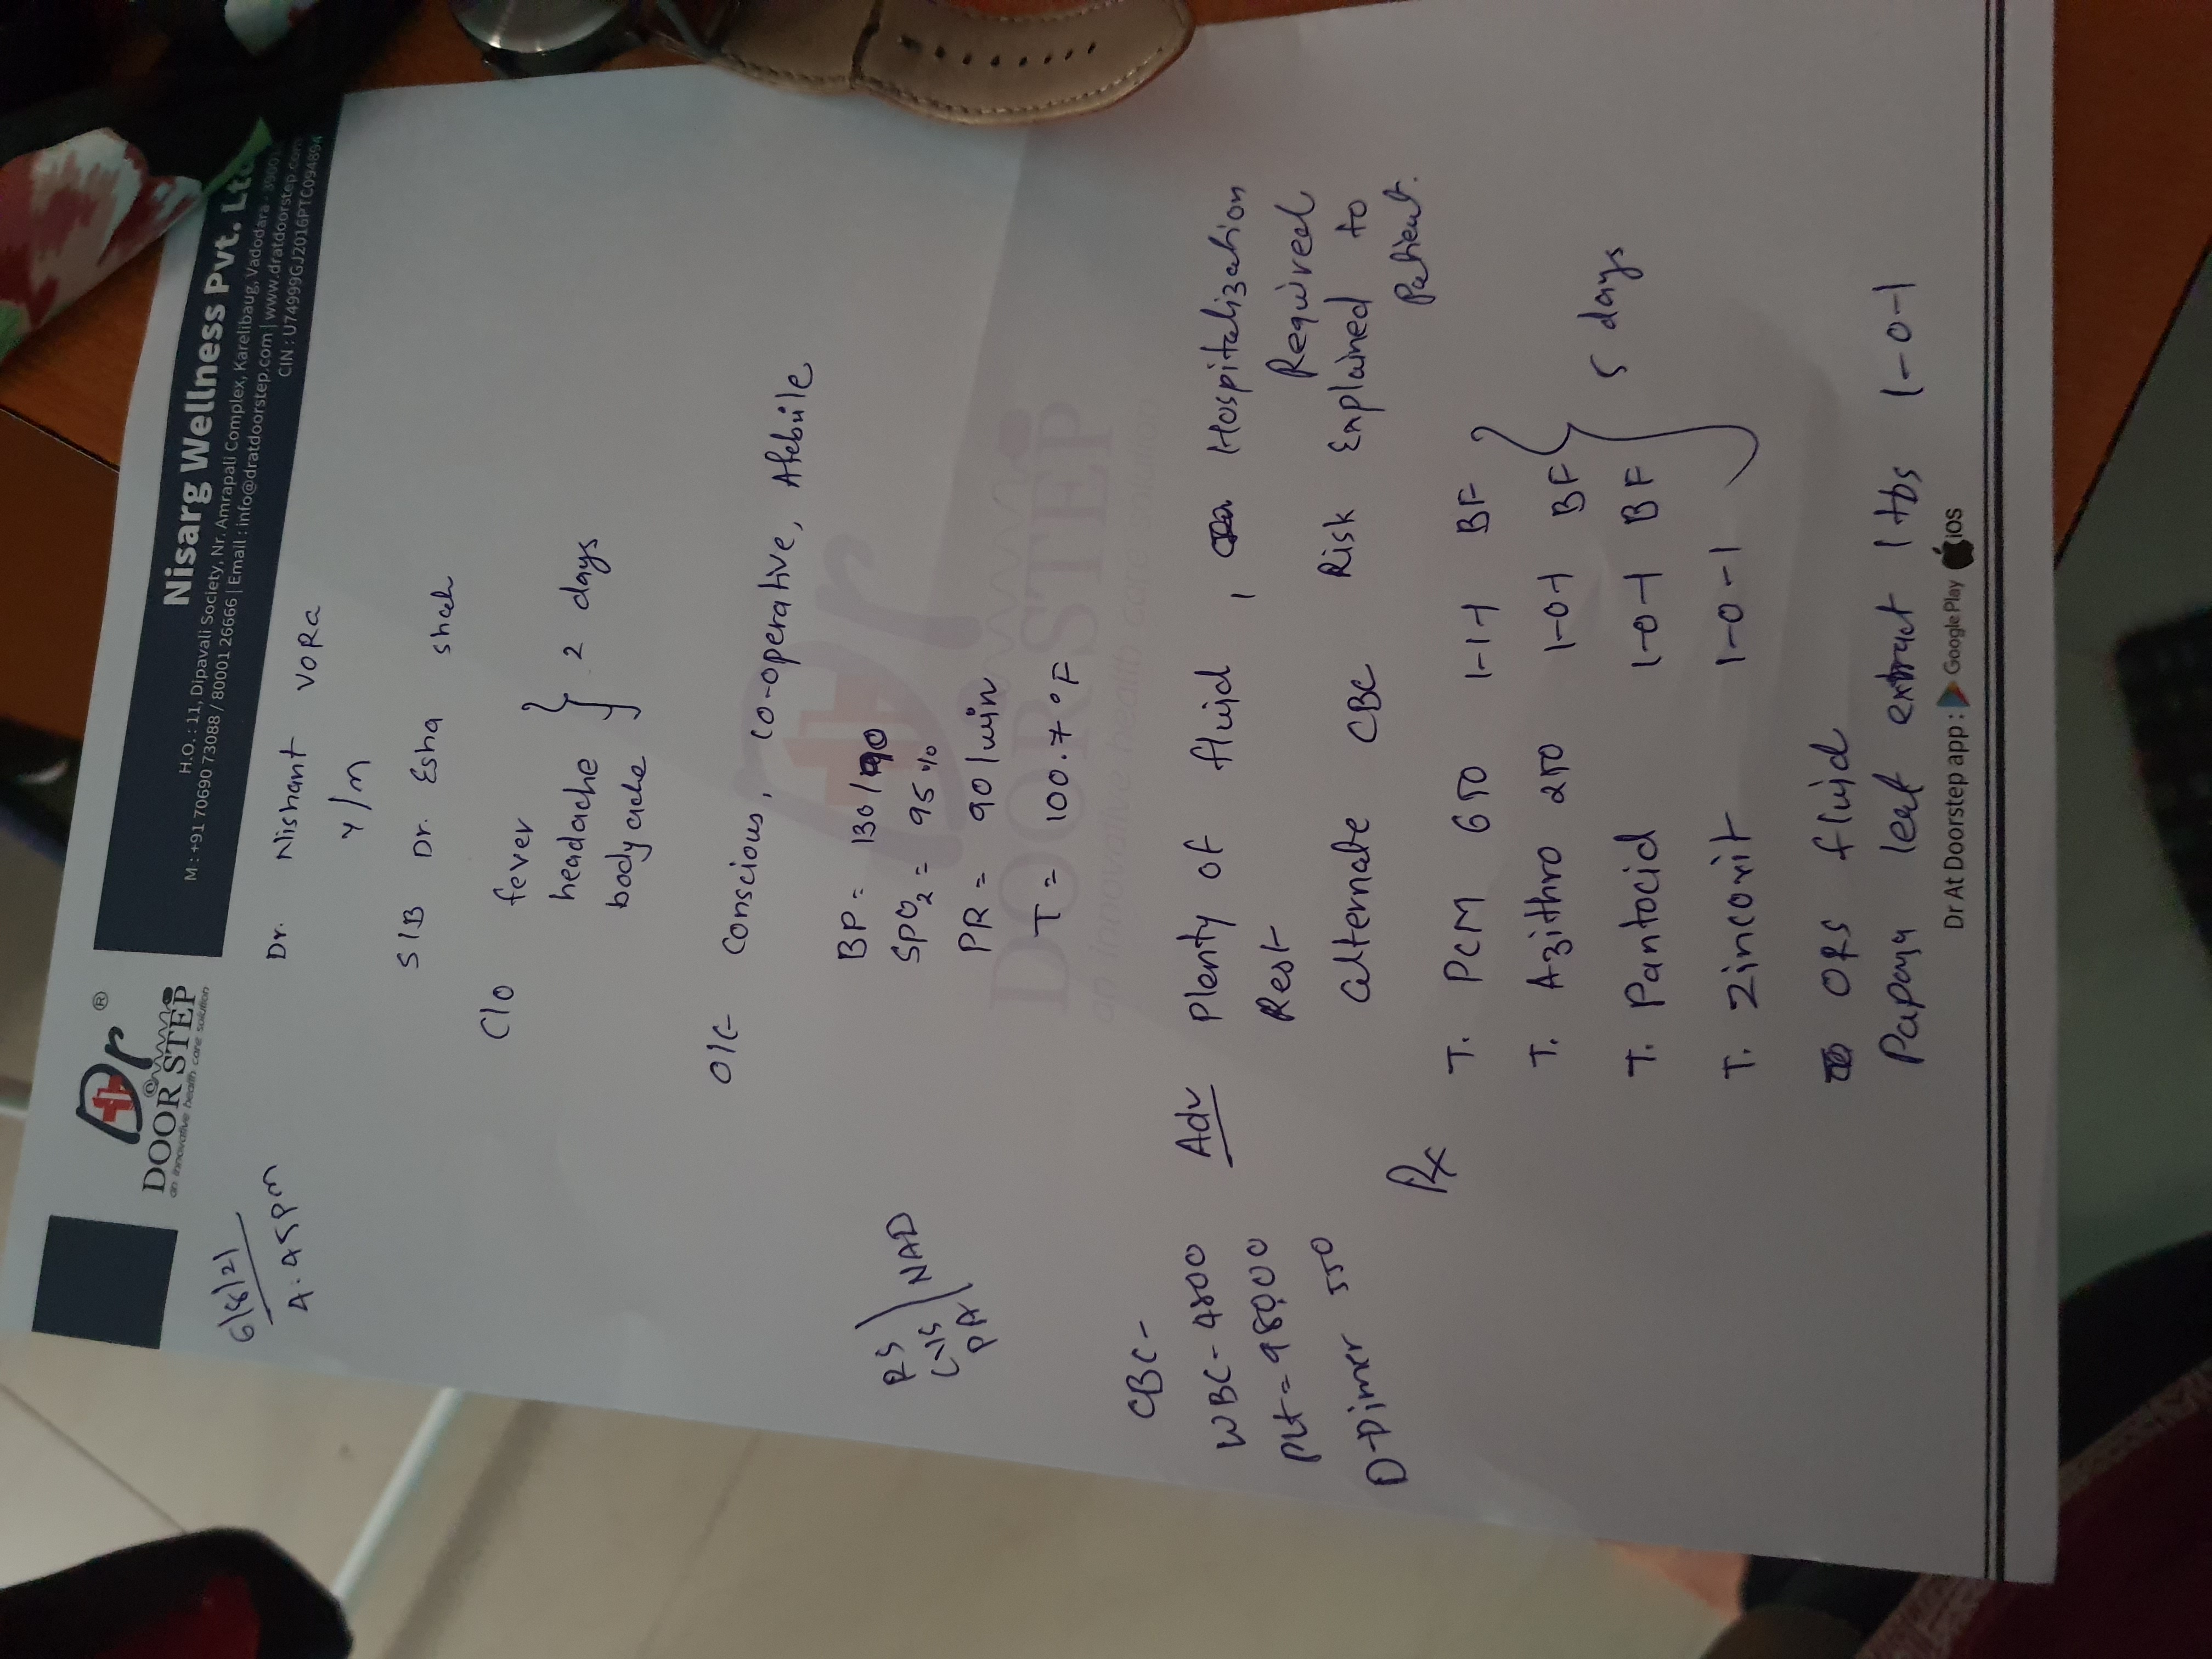 Dr®
DOOR STEP
an innovative health care solution
Nisarg Wellness Pvt. Ltd
H.O. : 11, Dipavali Society, Nr. Amrapali Complex, Karelibaug, Vadodara -
M : +91 70690 73088 / 80001 26666 | Email : info@dratdoorstep.com | www.dratdoorstep.com
CIN : U74999GJ2016PTC094894
6/8/21
4.45pm
Dr. Nishant VORa
Y/M
S/B Dr. Esha Shah
C/o fever
headache
body ache
2 days
O/E Conscious, Co-operative, Afebrile
BP = 130/90
SPO2 = 95%
PR = 90/min
T = 100.7 °F
RS
CVS
PA
NAD
CBC-
WBC- 4800
Plt = 98000
D-Dimer 550
Adv Plenty of fluid, Hospitalization
Rest Required
alternate CBC Risk Explained to
Patient.
Rx
T. PCM 650 1-1-1 BF
T. Azithro 250 1-0-1 BF
T. Pantocid 1-0-1 BF
T. Zincovit 1-0-1
5 days
ORS fluid
Papaya leaf extract 1 tbs 1-0-1
Dr At Doorstep app : Google Play iOS
Dr
DOOR STEP
an innovative health care solution